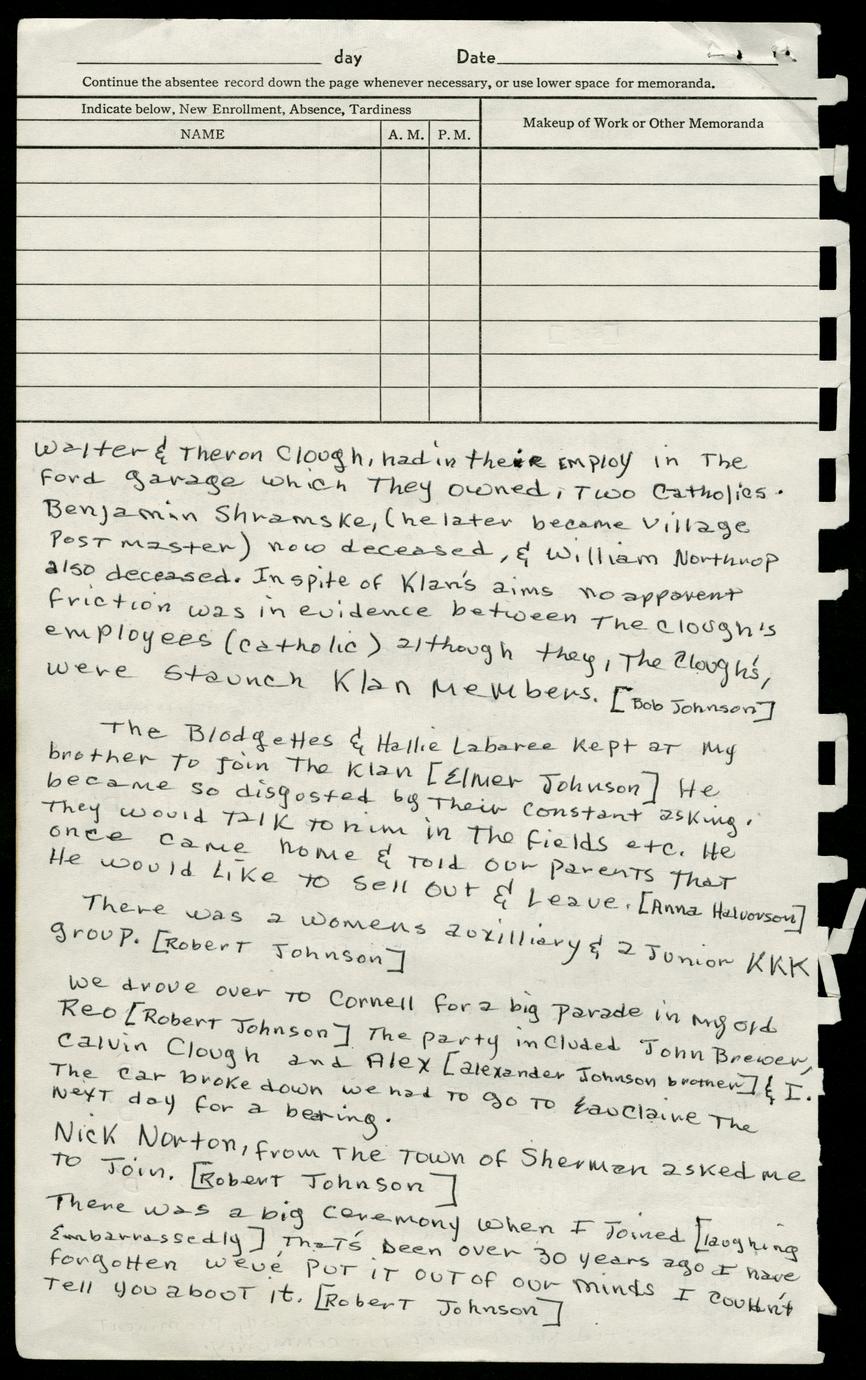 day Date
Continue the absentee record down the page whenever necessary, or use lower space for memoranda.
Indicate below, New Enrollment, Absence, Tardiness
Makeup of Work or Other Memoranda
NAME A. M. P. M.
Walter & Theron Clough, had in their employ in The
Ford garage which They owned, Two Catholics.
Benjamin Shramske, (he later became Village
Post master) now deceased, & William Northrop
also deceased. In spite of Klan's aims no apparent
friction was in evidence between The Clough's
employees (catholic) although they, The Clough's,
were staunch Klan members. [Bob Johnson]
The Blodgettes & Hallie Labaree kept at my
brother To join The Klan [Elmer Johnson] He
became so disgosted by Their constant asking.
They would Talk to him in The fields etc. He
once came home & Told our parents That
He would Like To sell out & Leave. [Anna Halvorson]
There was a womens auxilliary & a Junior KKK
group. [Robert Johnson]
We drove over To Cornell for a big parade in my old
Reo [Robert Johnson] The party included John Brewer,
Calvin Clough and Alex [alexander Johnson brother] & I.
The car broke down we had To go To Eau Claire The
next day for a bearing.
Nick Norton, from The Town of Sherman asked me
To Join. [Robert Johnson]
There was a big ceremony when I Joined [laughing
Embarrassedly] That's been over 30 years ago I have
forgotten we've put it out of our minds I couldn't
Tell you about it. [Robert Johnson]